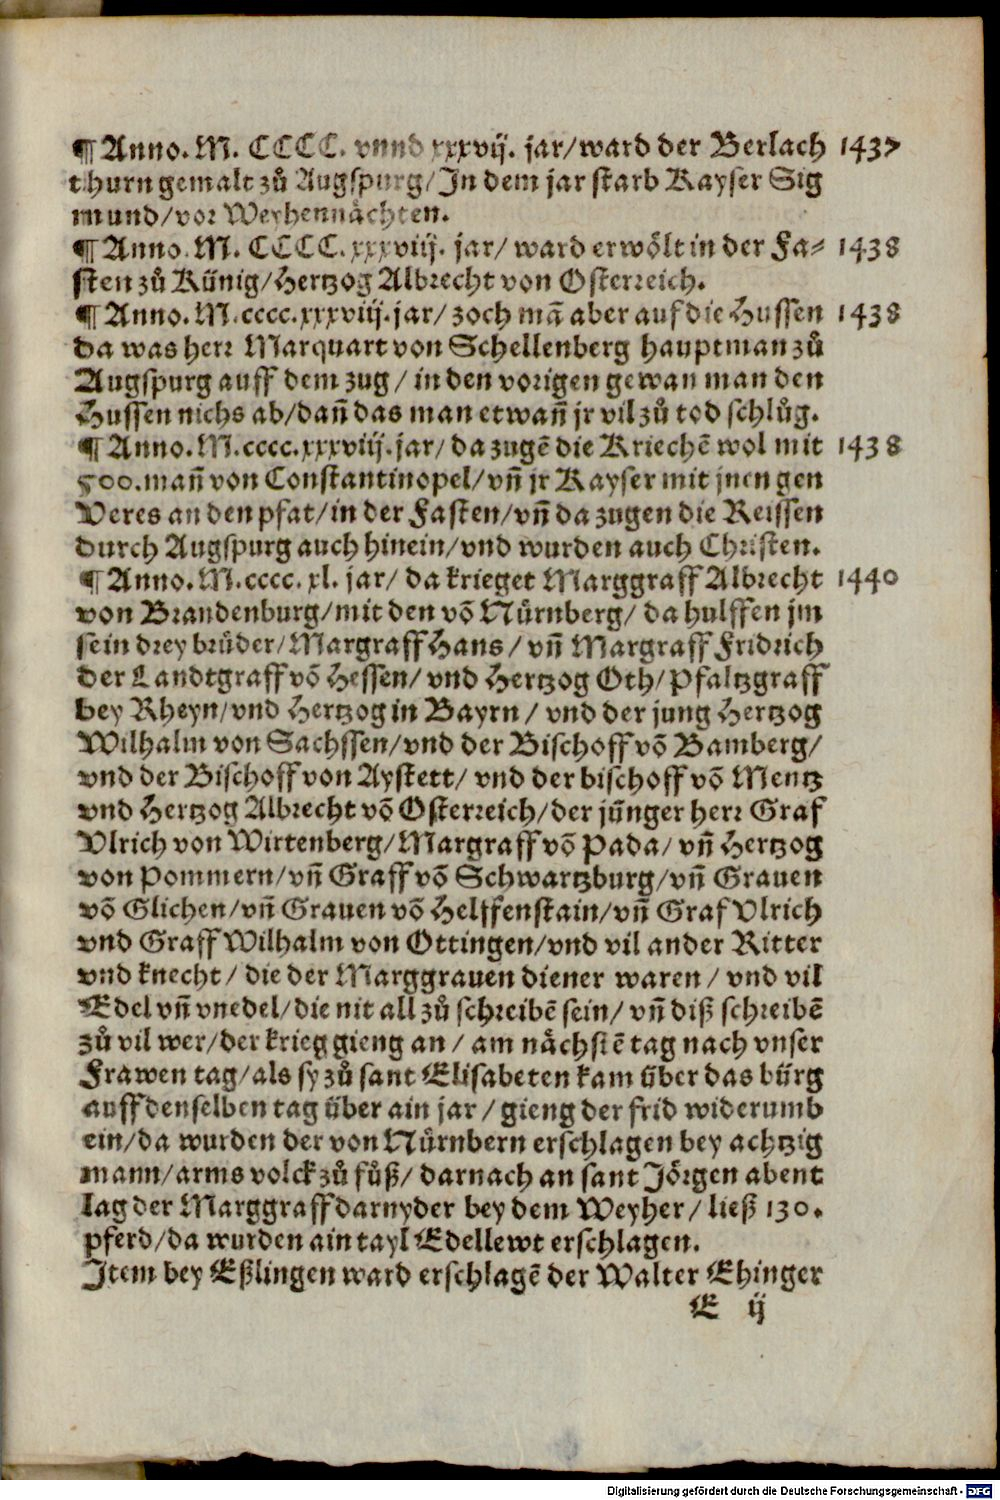 ¶ Anno. M. CCCC. vnnd xxxvij. jar/ward der Berlach 1437
thurn gemalt zů Augspurg/Jn dem jar starb Kayser Sig
mund/vor Weyhennåchten.
¶ Anno. M. CCCC. xxxviij. jar/ ward erwölt in der Fa- 1438
sten zů Künig/Hertzog Albrecht von Osterreich.
¶ Anno. M. cccc. xxxviij. jar/ zoch mā aber auf die Hussen 1438
da was herr Marquart von Schellenberg hauptman zů
Augspurg auff dem zug / in den vorigen gewan man den
Hussen nichs ab/dañ das man etwañ jr vil zů tod schlůg.
¶ Anno. M. cccc. xxxviij. jar/ da zugē die Kriechē wol mit 1438
500. mañ von Constantinopel/vñ jr Kayser mit jnen gen
Veres an den pfat/in der Fasten/vñ da zugen die Reissen
durch Augspurg auch hinein/vnd wurden auch Christen.
¶ Anno. M. cccc. xl. jar/ da krieget Marggraff Albrecht 1440
von Brandenburg/mit den vō Nürnberg/ da hulffen jm
sein drey brüder/Margraff Hans / vñ Margraff Fridrich
der Landtgraff vō Hessen/ vnd Hertzog Oth/Pfaltzgraff
bey Rheyn/vnd Hertzog in Bayrn / vnd der jung Hertzog
Wilhalm von Sachssen/vnd der Bischoff vō Bamberg/
vnd der Bischoff von Aystett/ vnd der bischoff vō Mentz
vnd Hertzog Albrecht vō Osterreich/der jünger herr Graf
Vlrich von Wirtenberg/Margraff vō Pada/ vñ Hertzog
von Pommern/vñ Graff vō Schwartzburg/vñ Grauen
vō Glichen/vñ Grauen vō Helffenstain/vñ Graf Vlrich
vnd Graff Wilhalm von Ottingen/vnd vil ander Ritter
vnd knecht / die der Marggrauen diener waren / vnd vil
Edel vñ vnedel/die nit all zů schreibē sein/ vñ diß schreibē
zů vil wer/der krieg gieng an / am nåchstē tag nach vnser
Frawen tag/als sy zů sant Elisabeten kam über das bürg
auff denselben tag über ain jar / gieng der frid widerumb
ein/da wurden der von Nürnbern erschlagen bey achtzig
mann/arms volck zů fůß/ darnach an sant Jörgen abent
lag der Marggraff darnyder bey dem Weyher/ ließ 130.
pferd/da wurden ain tayl Edellewt erschlagen.
Jtem bey Eßlingen ward erschlagē der Walter Ehinger
E ij
Digitalisierung gefördert durch die Deutsche Forschungsgemeinschaft - DFG